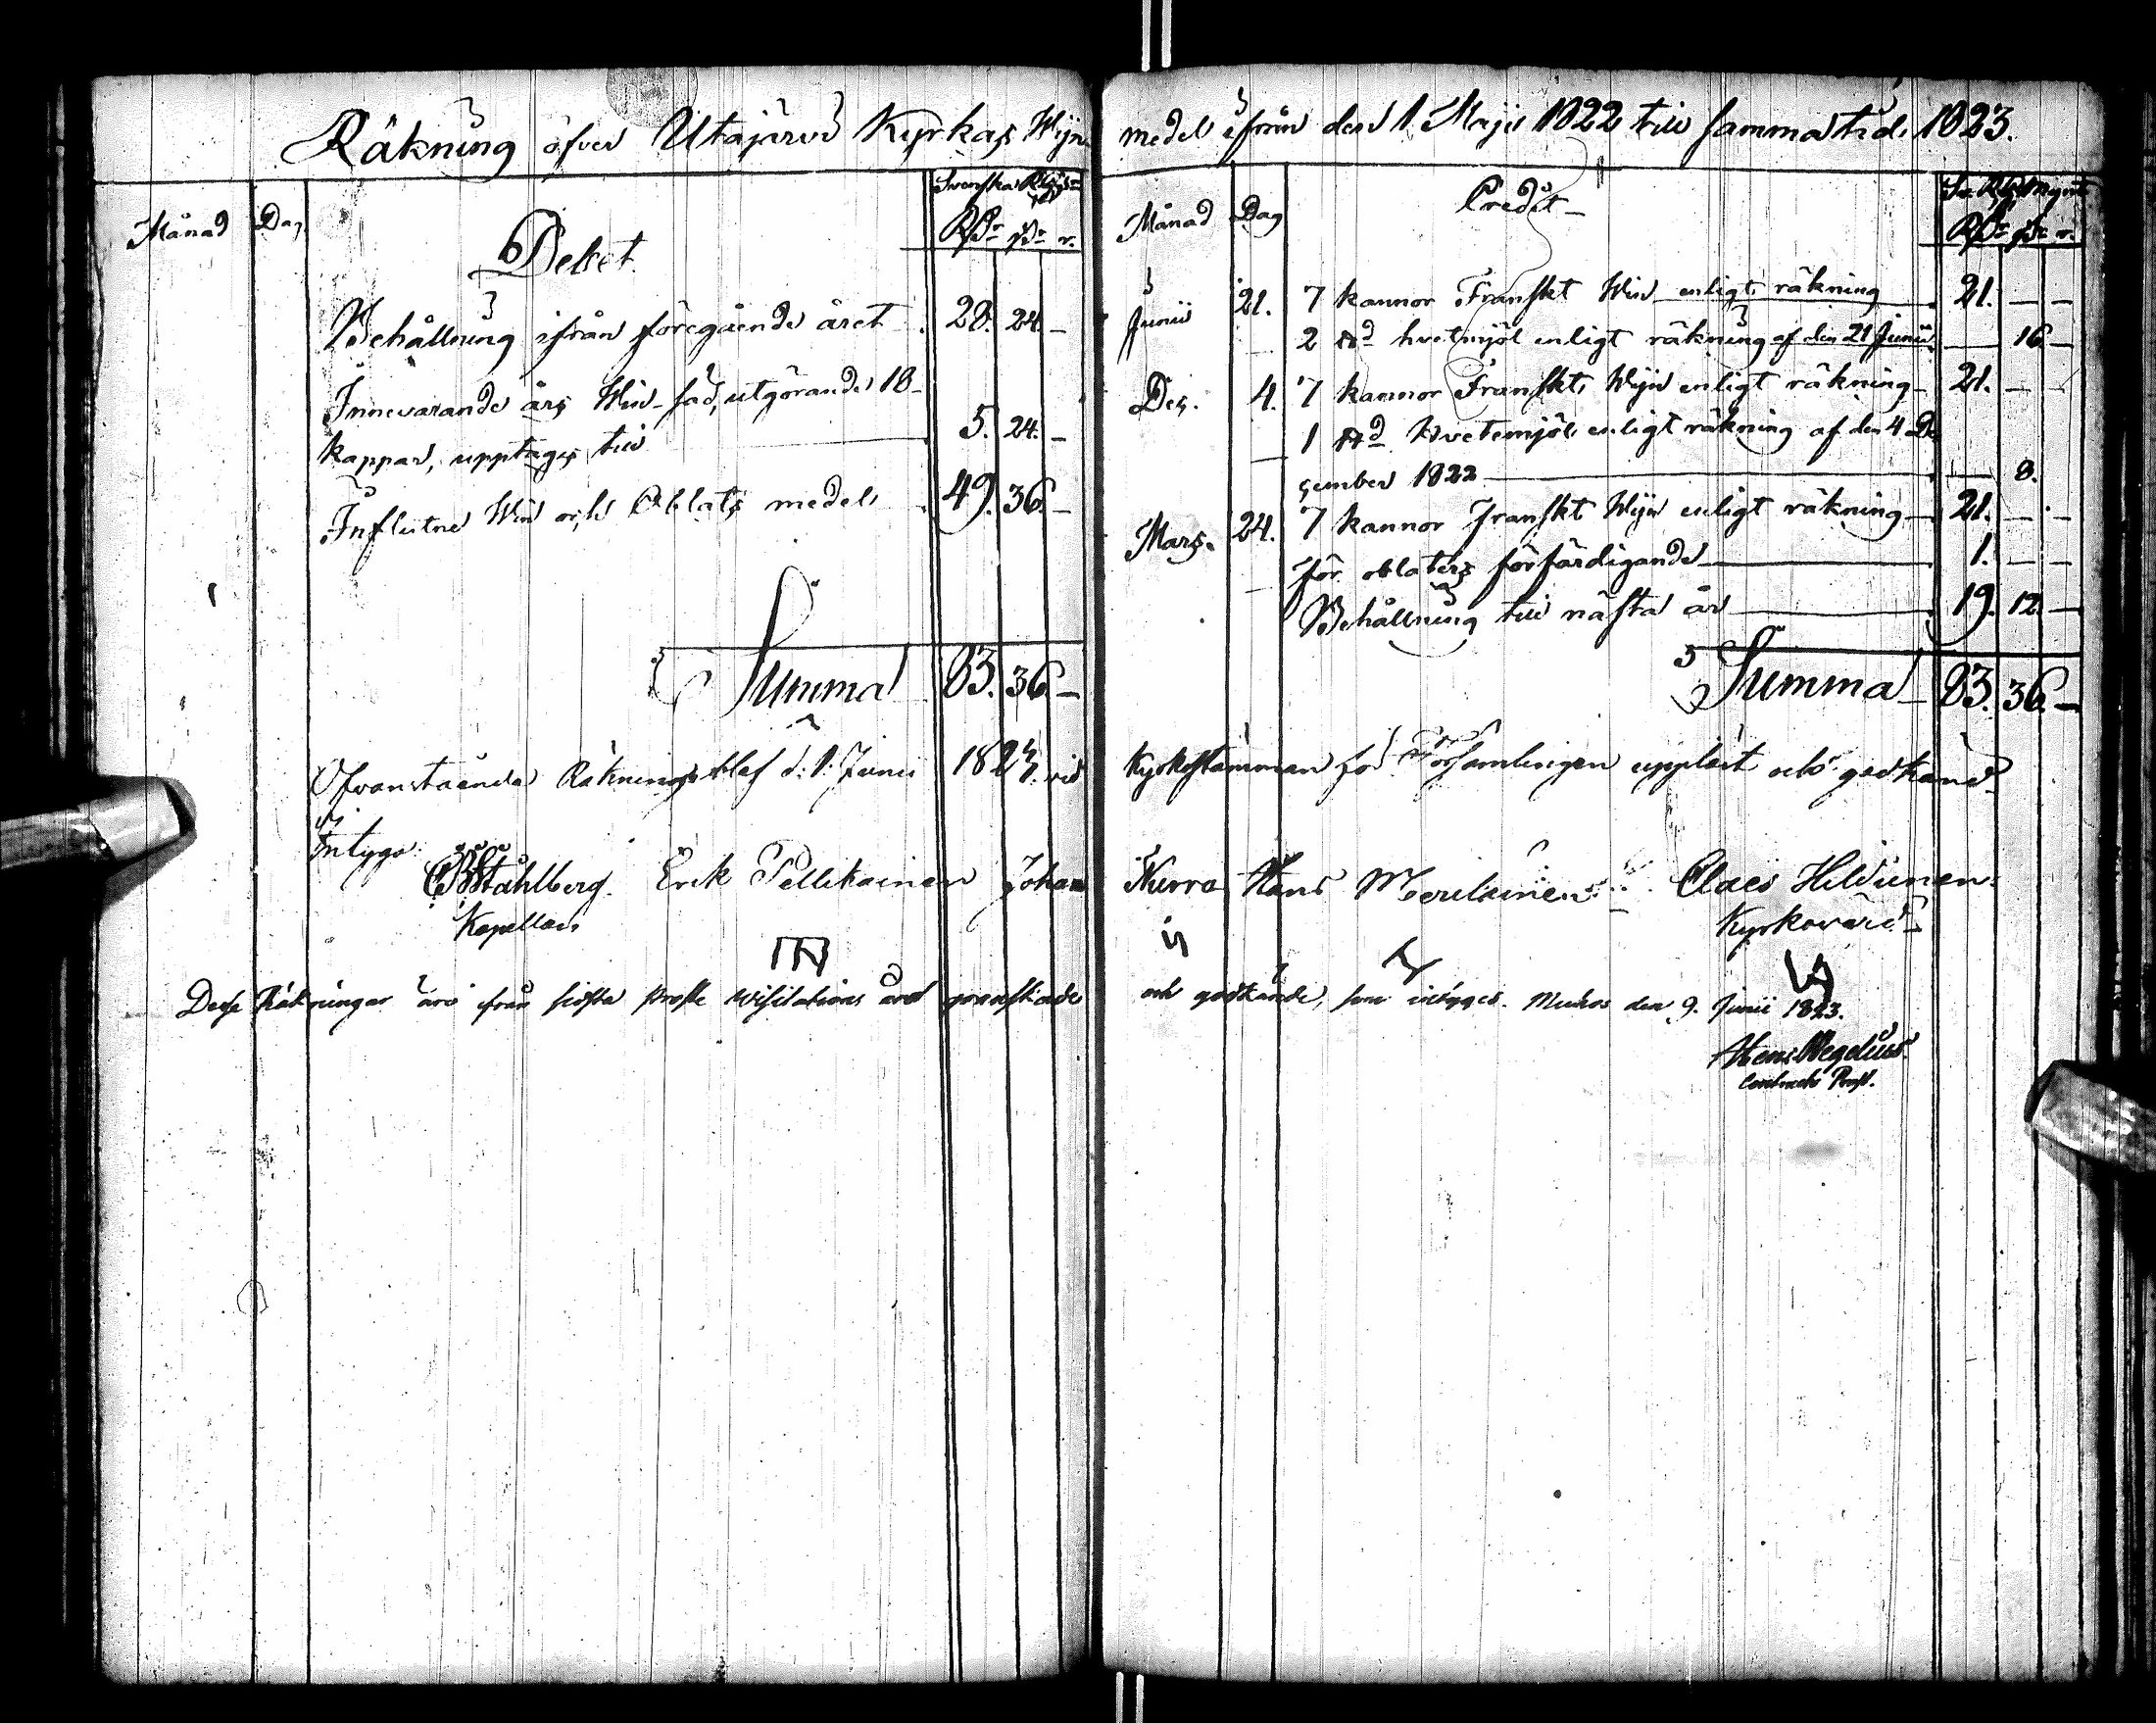 Räkning öfver Utajärvi Kyrkas Wijn
Svenska Rgs
Månad Dag Rdr sk r.
Debet.
Behållning ifrån föregående året 28. 24. —
Innevarande års Win-säd, utgörande 18
kappar, upptages till 5. 24. —
Influtne Win och Oblats medel 49. 36. —
Summa 83. 36. —
Ofvanstående Räkning blef d. 1. Junii 1823 vid
Intyga:
Ståhlberg. Erik Pellikainen Johan
Kapellan
Desse Räkningar äro från sidsta Probste Visitations året granskade
medel ifrån den 1. Maji 1822 till samma tid 1823.
Månad Dag Credit Rdr sk r.
Junii 21. 7 kannor Franskt Win enligt räkning 21. — —
2 ℔d hvetmjöl enligt räkning af den 21 Junii — 16 —
Dec. 4. 7 kannor Franskt Wijn enligt räkning 21. — —
1 ℔d Hvetemjöl enligt räkning af den 4 De
cember 1822 — 8.
Mars. 24. 7 kannor Franskt Wijn enligt räkning 21. — —
för oblaters förfärdigande 1. — —
Behållning till nästa år 19. 12. —
Summa 83. 36. —
Kyrkostämman för Församlingen uppläst och godkänd
Kurra Hans Merilainen Claes Hildunen
Kyrkovärd
och godkände, som intygges. Muhos den 9. Junii 1823.
Wegelius
Contracts Prost.